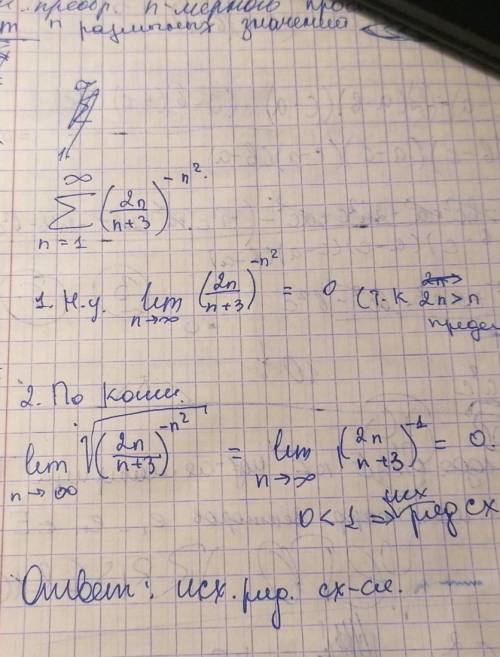 преобр. n-мерного
n различных значений
∞
∑ (2n/(n+3))^(-n²)
n = 1
1. Н.у. lim n→∞ (2n/(n+3))^(-n²) = 0 (т.к. 2n > n
2. По Коши.
lim n→∞ ⁿ√((2n/(n+3))^(-n²)) = lim n→∞ (2n/(n+3))^(-1) = 0.
0 < 1 ⇒ исх ряд сх
Ответ: исх. ряд. сх-ся.